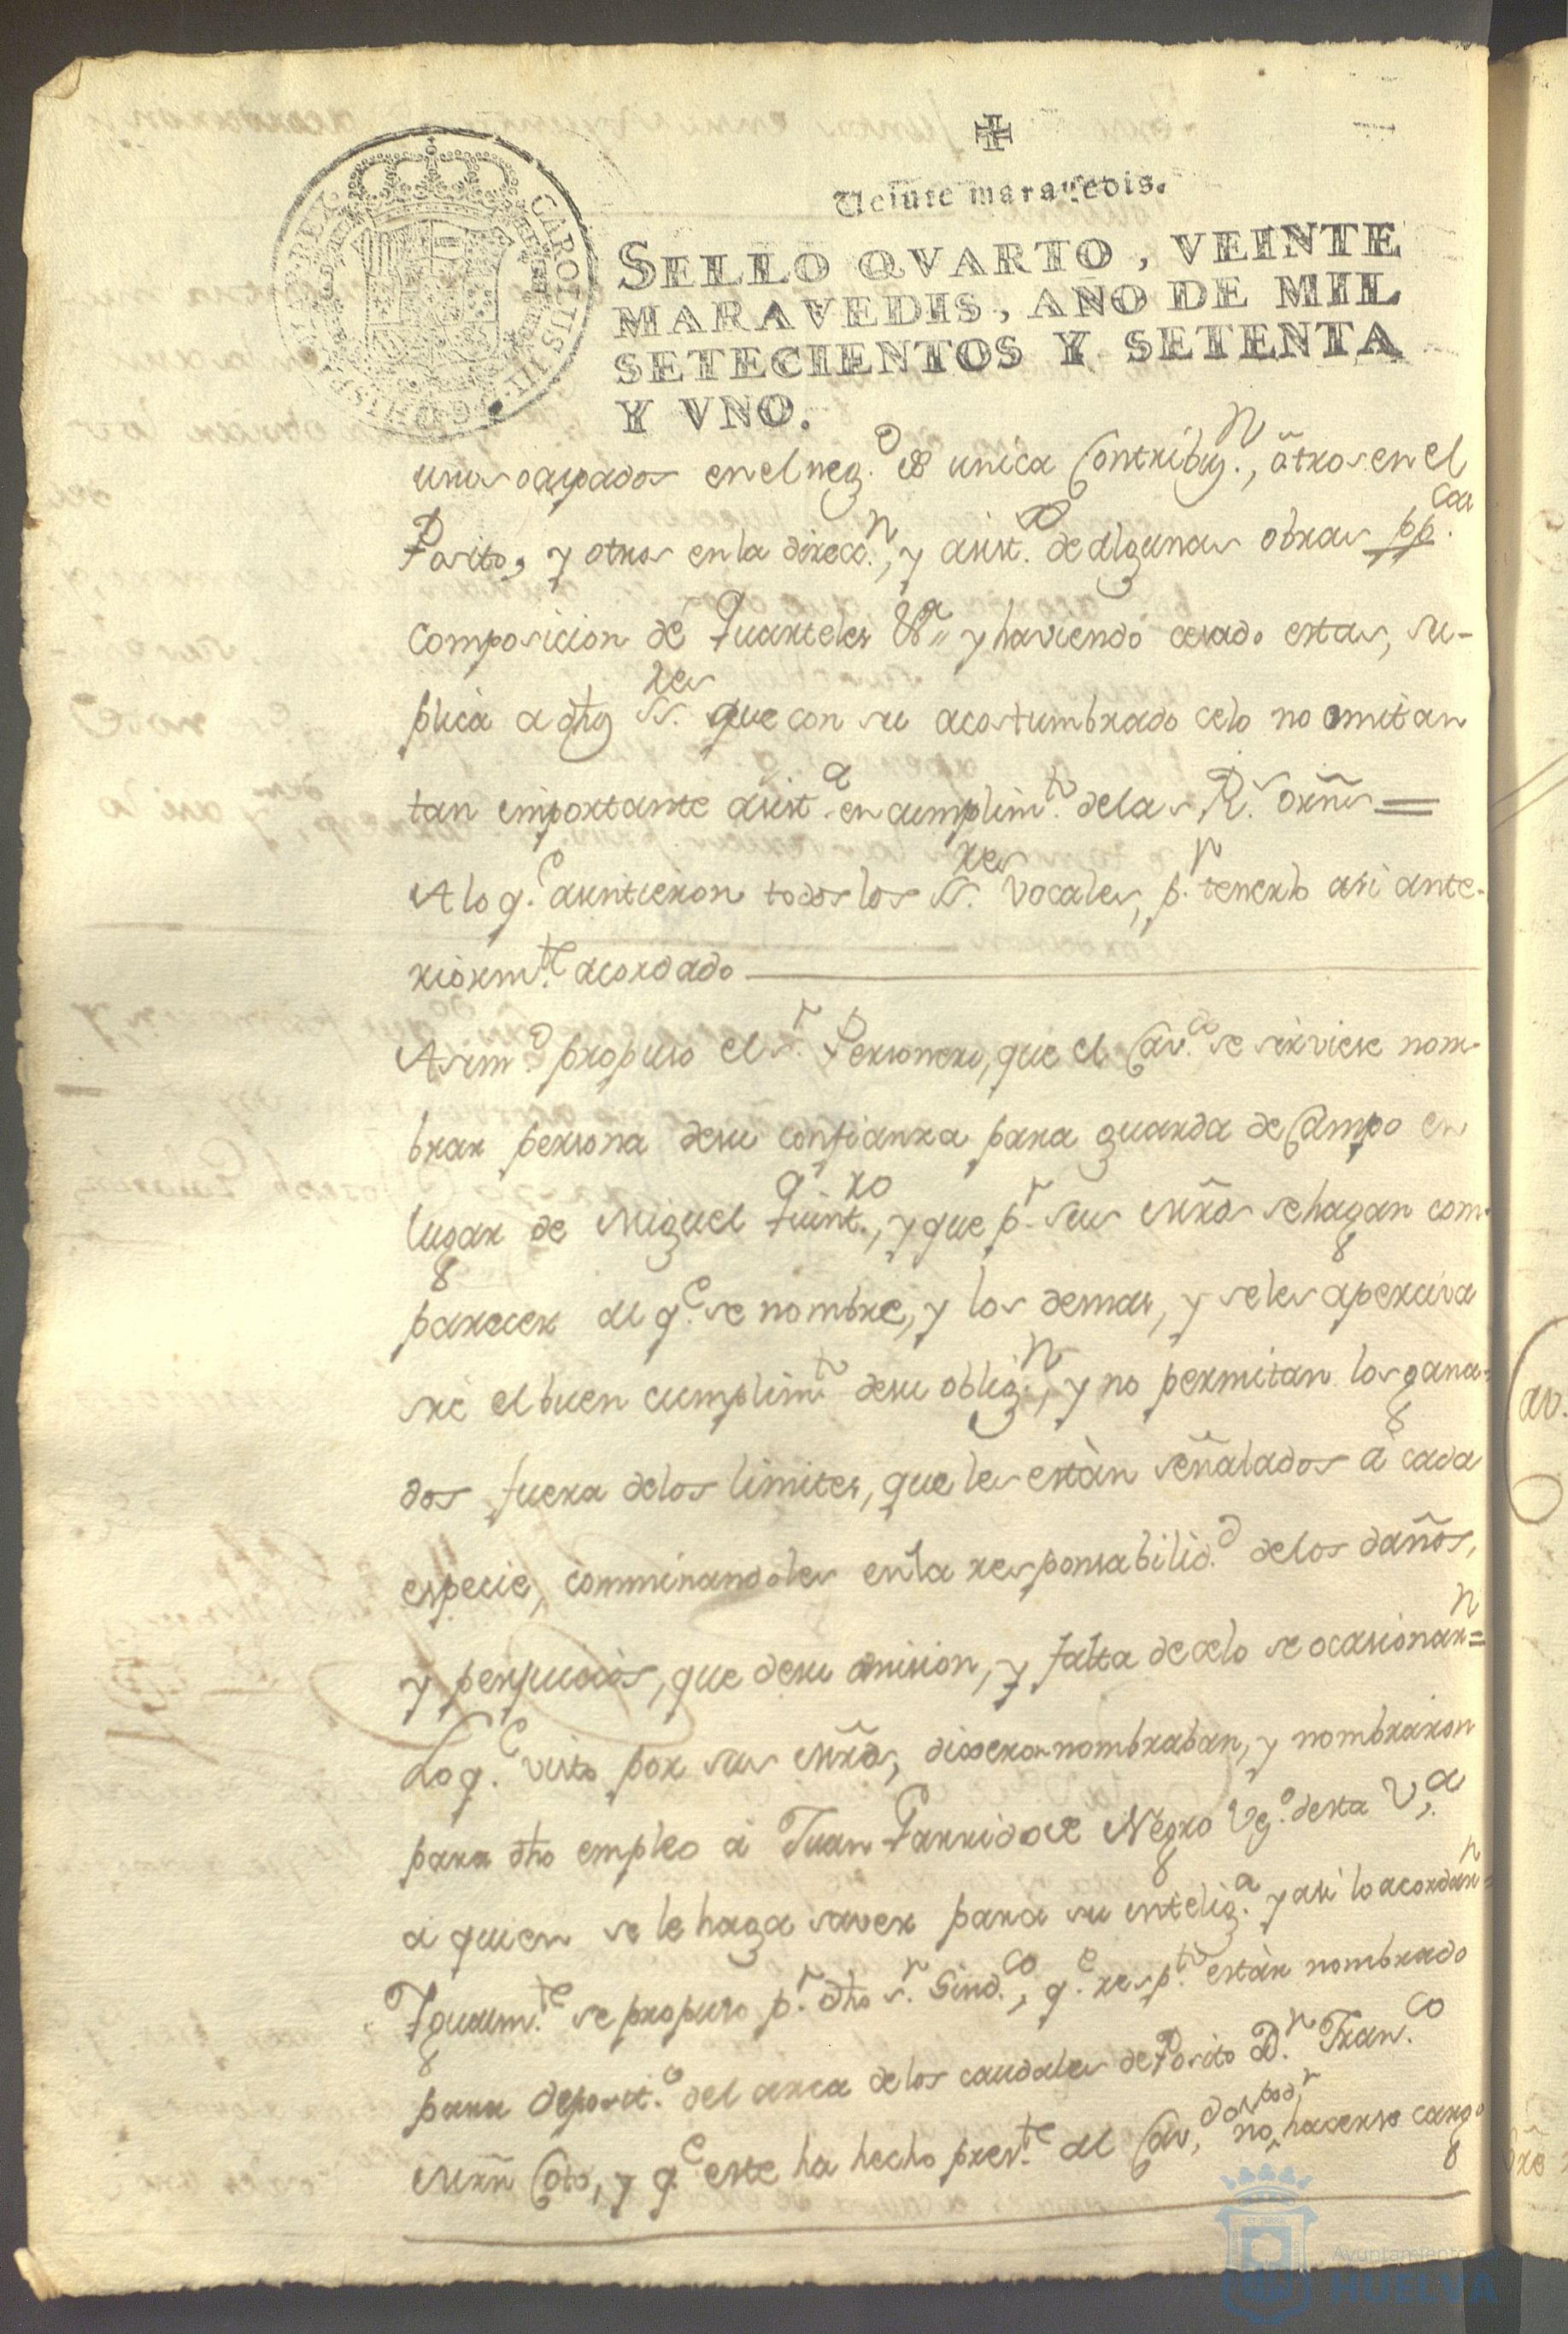 Veinte maravedis.
SELLO QVARTO, VEINTE
MARAVEDIS, AÑO DE MIL
SETECIENTOS Y SETENTA
Y VNO.
CAROLUS III D G HISPANIAR REX
unos ocupados en el neg.º de unica Contribuz.n, otros en el
Posito, y otros en la direcc.n, y asist.a de algunas obras pp.cas
composicion de Quarteles &.a y haviendo cesado estas, su-
plica a dhos SS.res que con su acostumbrado celo no omitan
tan importante asist.a en cumplim.to de las R.s orñs =
A lo q.e asintieron todos los SS.res Vocales, p.r tenerlo asi ante-
riorm.te acordado
Asim.o propuso el s.r Personero, que el Cav.do se sirviese nom-
brar persona de su confianza para guarda de Campo en
lugar de Miguel Quint.ro, y que p.r sus Mrds se hagan com-
parecer al q.e se nombre, y los demas, y se les aperciva
sre el buen cumplim.to de su oblig.n, y no permitan los gana-
dos fuera de los limites, que les estàn señalados à cada
especie, comminandoles en la responsabilid.d de los daños,
y perjuicios, que de su omision, y falta de celo se ocasionar.n =
Lo q.e visto por sus Mrds, dixeron nombraban, y nombraron
para dho empleo a Juan Garrido Negro Vz.o desta V.a
a quien se le haga saver para su intelig.a y asi lo acordar.n =
Igualm.te se propuso p.r dho s.r Sind.co, q.e resp.to estàr nombrado
para deposit.o del arca de los caudales de Posito D.n Fran.co
Mrñ Coto, y q.e este ha hecho pres.te al Cav.do no poder hacerse cargo
Ayuntamiento
HUELVA